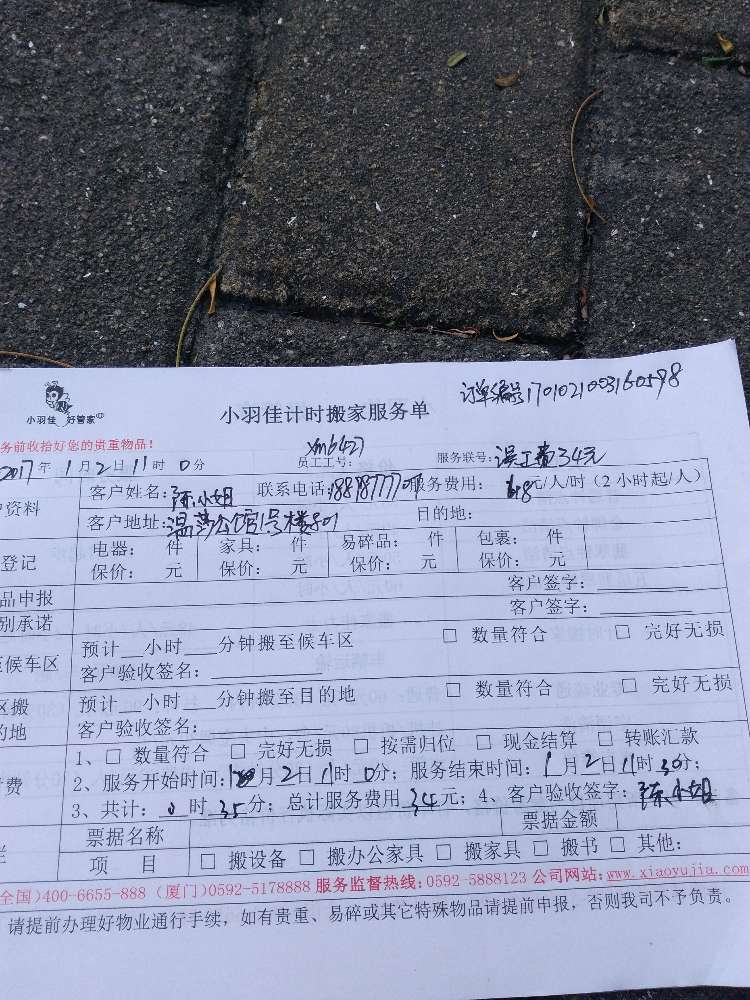 订单编号1701021003160598
小羽佳 好管家
小羽佳计时搬家服务单
务前收拾好您的贵重物品！
2017年1月2日11时0分 员工工号：xm6427 服务联号：误工费34元
户资料 客户姓名：陈小姐 联系电话： 服务费用：68元/人/时（2小时起/人）
客户地址：公馆1号楼801 目的地：
登记 电器： 件 家具： 件 易碎品： 件 包裹： 件
保价： 元 保价： 元 保价： 元 保价： 元
品申报 客户签字：
别承诺 客户签字：
至候车区 预计 小时 分钟搬至候车区 □ 数量符合 □ 完好无损
客户验收签名：
区搬 预计 小时 分钟搬至目的地 □ 数量符合 □ 完好无损
的地 客户验收签名：
1、□ 数量符合 □ 完好无损 □ 按需归位 □ 现金结算 □ 转账汇款
付费 2、服务开始时间：1月2日11时0分；服务结束时间：1月2日11时30分；
3、共计：0时35分；总计服务费用34元；4、客户验收签字：陈小姐
票据名称 票据金额
栏 项 目 □ 搬设备 □ 搬办公家具 □ 搬家具 □ 搬书 □ 其他：
全国）400-6655-888（厦门）0592-5178888 服务监督热线：0592-5888123 公司网站：www.xiaoyujia.com
请提前办理好物业通行手续，如有贵重、易碎或其它特殊物品请提前申报，否则我司不予负责。